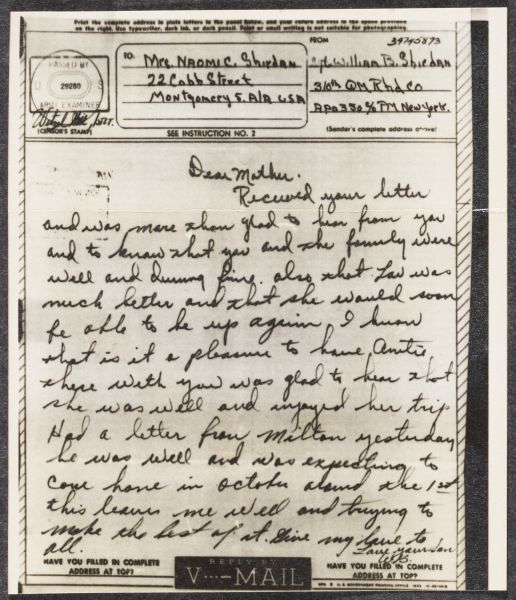 Print the complete address in plain letters in the panel below, and your return address in the space provided
on the right. Use typewriter, dark ink, or dark pencil. Faint or small writing is not suitable for photographing.
PASSED BY
U S
29280
ARMY EXAMINER
(CENSOR'S STAMP)
TO:
Mrs. Naomi C. Sheridan
22 Cobb Street
Montgomery 5. Ala USA
SEE INSTRUCTION NO. 2
FROM
34745873
Cpl. William B. Sheridan
310th QM Rhd. Co
APO 350 % PM New York.
(Sender's complete address above)
Dear Mother.
Received your letter
and was more than glad to hear from you
and to know that you and the family were
well and duning fine. also that Lov was
much better and that she would soon
be able to be up again, I know
that is it a pleasure to have
there with you was glad to hear that
she was well and injoyed her trip
Had a letter from Milton yesterday
he was well and was expecting to
come home in October around the 1st
this leaves me well and trying to
make the best of it. Give my love to
all.
Love your son
W.B.
HAVE YOU FILLED IN COMPLETE
ADDRESS AT TOP?
REPLY BY
V···—MAIL
HAVE YOU FILLED IN COMPLETE
ADDRESS AT TOP?